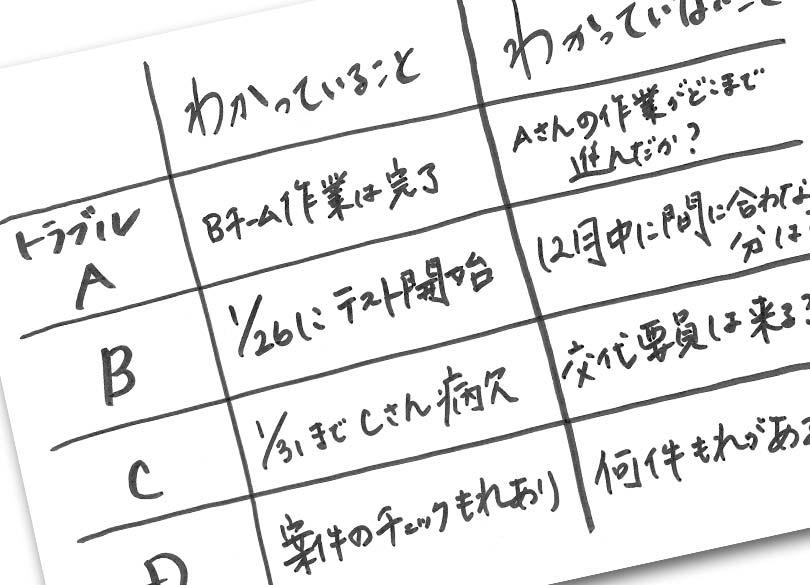 わかっていること
わかっていないこと
トラブル
A
Bチーム作業は完了
Aさんの作業がどこまで
進んだか?
B
1/26にテスト開始
12月中に間に合わな
分は
C
1/31までCさん病欠
交代要員は来る
D
案件のチェックもれあり
何件もれがある